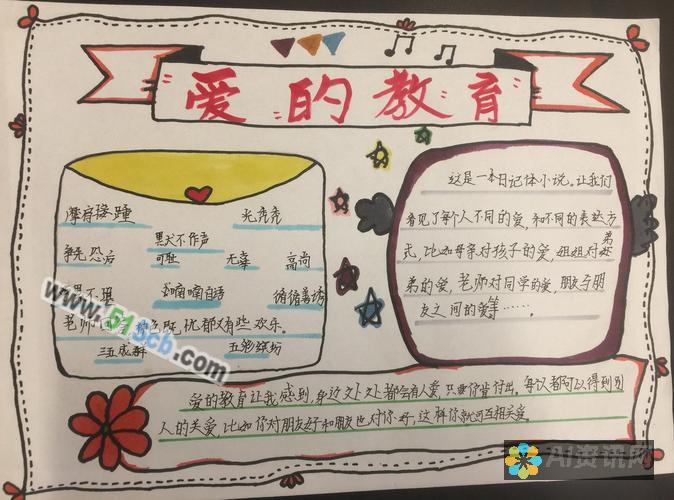 爱的教育
摩肩接踵 光秃秃
默不作声
争先恐后 可耻 无辜 高尚
喃喃自语 循循善诱
老师 忧郁又有些欢乐。
三五成群 五彩缤纷
这是一本日记体小说。让我们
看见了每个人不同的爱,和不同的表达方
式,比如母亲对孩子的爱,姐姐对弟
弟的爱,老师对同学的爱,朋友与朋
友之间的爱等……。
爱的教育让我感到,身边处处都会有人爱,只要你肯付出。每次都可以得到别
人的关爱,比如你对朋友好和朋友也对你好,这样你就可互相关爱
www.51scb.com
AI资讯网